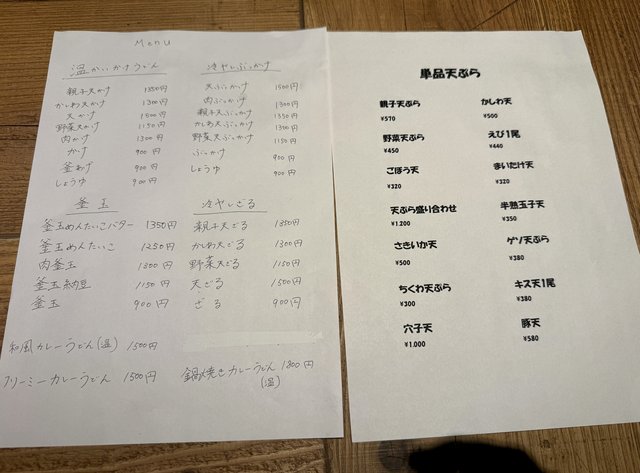 Menu
温かいかけうどん
親子天かけ 1350円
かしわ天かけ 1300円
天かけ 1500円
野菜天かけ 1150円
肉かけ 1300円
かけ 900円
釜あげ 900円
しょうゆ 900円
冷やしぶっかけ
天ぶっかけ 1500円
肉ぶっかけ 1300円
親子天ぶっかけ 1350円
かしわ天ぶっかけ 1300円
野菜天ぶっかけ 1150円
ぶっかけ 900円
しょうゆ 900円
釜玉
釜玉めんたいこバター 1350円
釜玉めんたいこ 1250円
肉釜玉 1300円
釜玉納豆 1150円
釜玉 900円
冷やしざる
親子天ざる 1350円
かしわ天ざる 1300円
野菜天ざる 1150円
天ざる 1500円
ざる 900円
和風カレーうどん(温) 1500円
クリーミーカレーうどん 1500円
鍋焼きカレーうどん 1800円
(温)
単品天ぷら
親子天ぷら
¥570
かしわ天
¥500
野菜天ぷら
¥450
えび1尾
¥440
ごぼう天
¥320
まいたけ天
¥320
天ぷら盛り合わせ
¥1,200
半熟玉子天
¥350
さきいか天
¥500
ゲソ天ぷら
¥380
ちくわ天ぷら
¥300
キス天1尾
¥380
穴子天
¥1,000
豚天
¥580